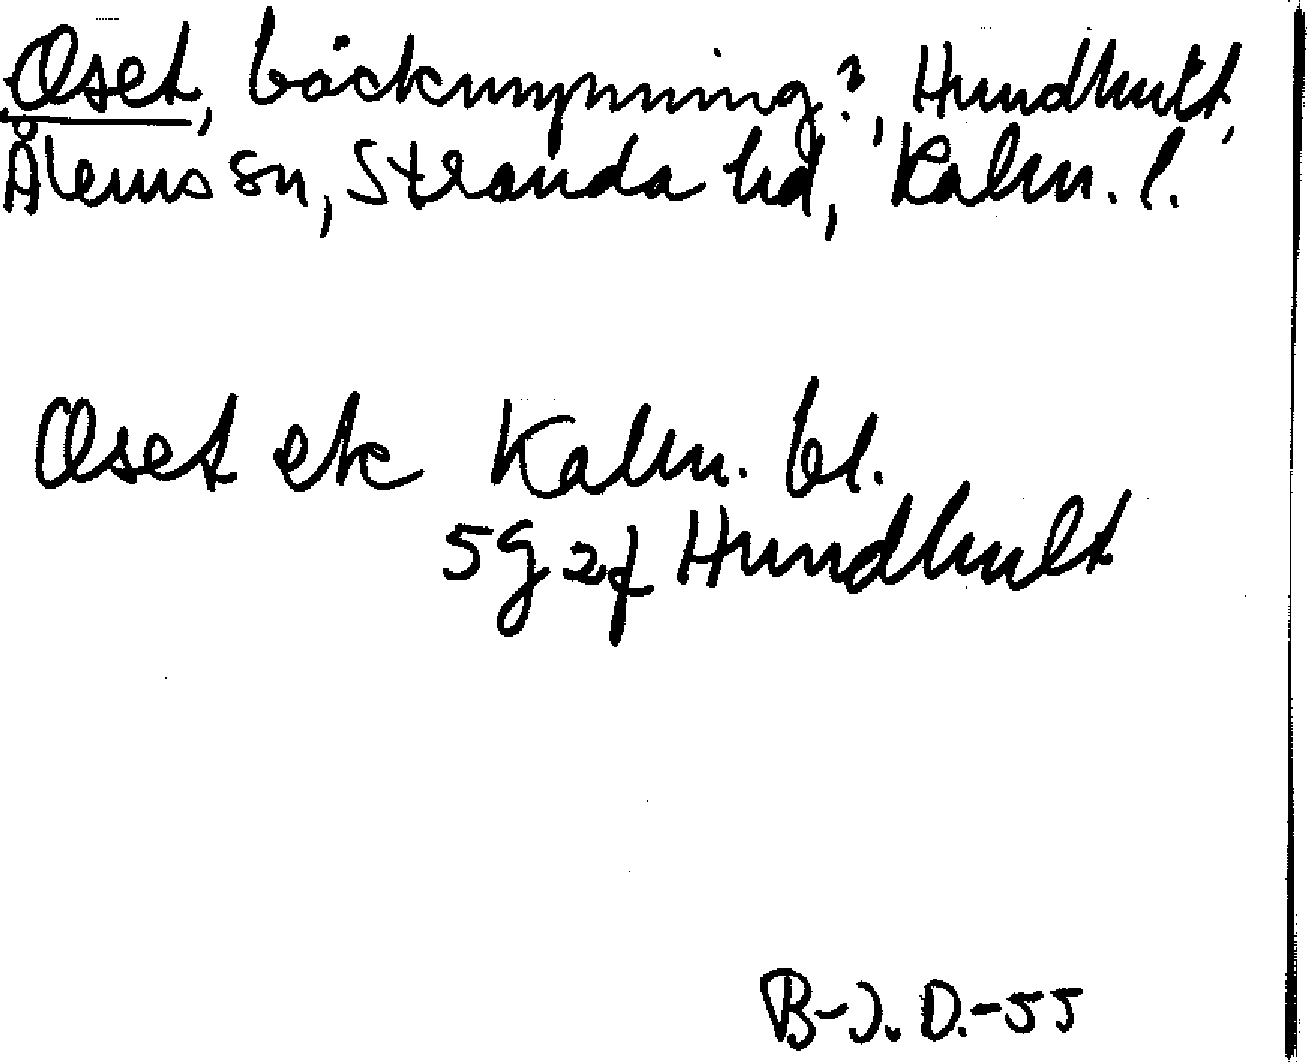 Oset, bäckmynning?, Hundhult,
Ålems sn, Stranda hd, Kalm. l.
Oset ek Kalm. bl.
5G2f Hundhult
B-J. D.-55